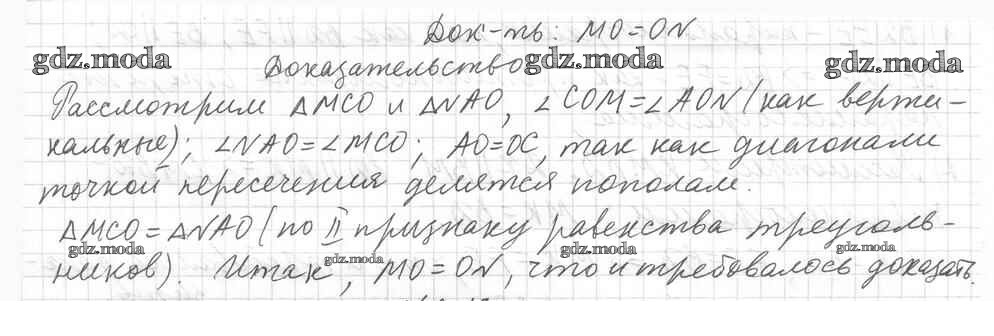 Док-ть: MO=ON
gdz.moda gdz.moda gdz.moda
Доказательство
Рассмотрим △MCO и △NAO, ∠COM=∠AON (как верти-
кальные); ∠NAO=∠MCO; AO=OC, так как диагонали
точкой пересечения делятся пополам.
△MCO=△NAO (по II признаку равенства треуголь-
gdz.moda gdz.moda gdz.moda gdz.moda
ников). Итак, MO=ON, что и требовалось доказать.